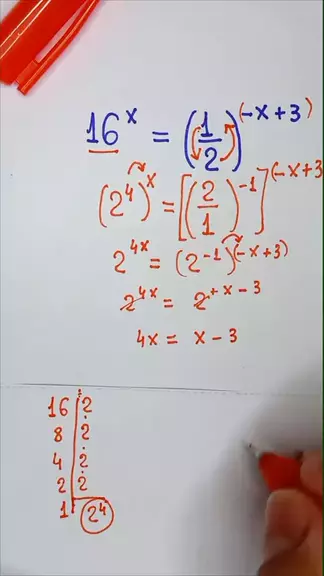 16^x = (1/2)^(-x+3)
(2^4)^x = [(2/1)^-1]^(-x+3
2^4x = (2^-1)^(-x+3)
2^4x = 2^+x-3
4x = x-3
16 | 2
8 | 2
4 | 2
2 | 2
1 | 2^4